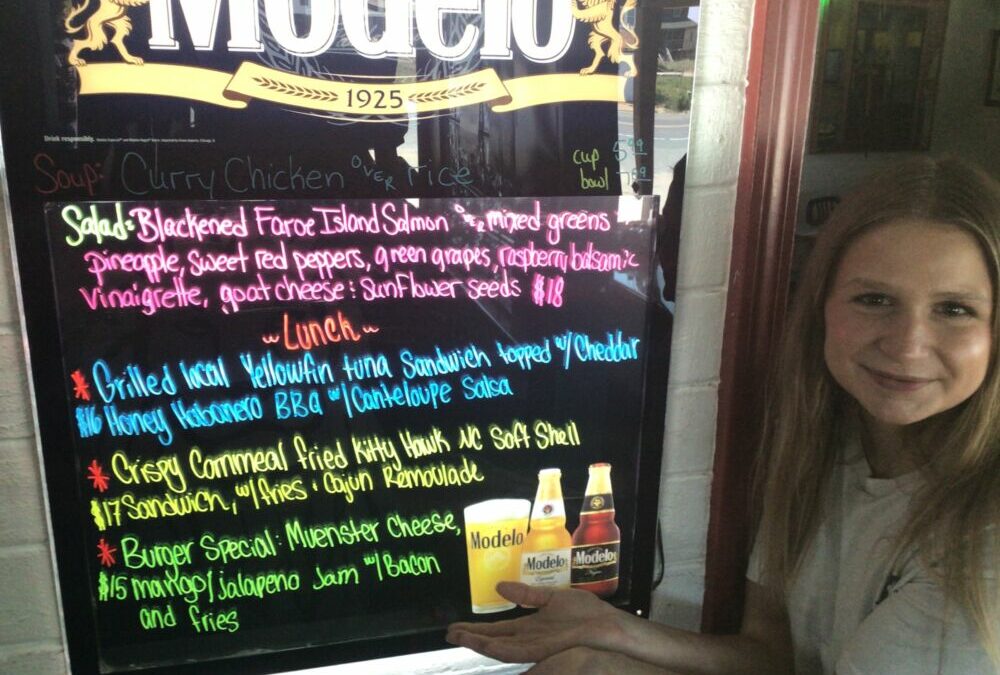 Modelo
1925
Drink responsibly.
Soup: Curry Chicken OVER rice cup 5.49
bowl
Salad: Blackened Faroe Island Salmon OVER mixed greens
pineapple, sweet red peppers, green grapes, raspberry balsamic
vinaigrette, goat cheese : sunflower seeds $18
Lunch
* Grilled local Yellowfin tuna Sandwich topped w/ Cheddar
$16 Honey Habanero BBQ w/ Canteloupe Salsa
* Crispy Cornmeal fried Kitty Hawk NC Soft Shell
$17 Sandwich, w/ fries + Cajun Remoulade
* Burger Special: Muenster Cheese,
$15 mango/jalapeno Jam w/ Bacon
and fries
Modelo
Modelo
Especial
Modelo